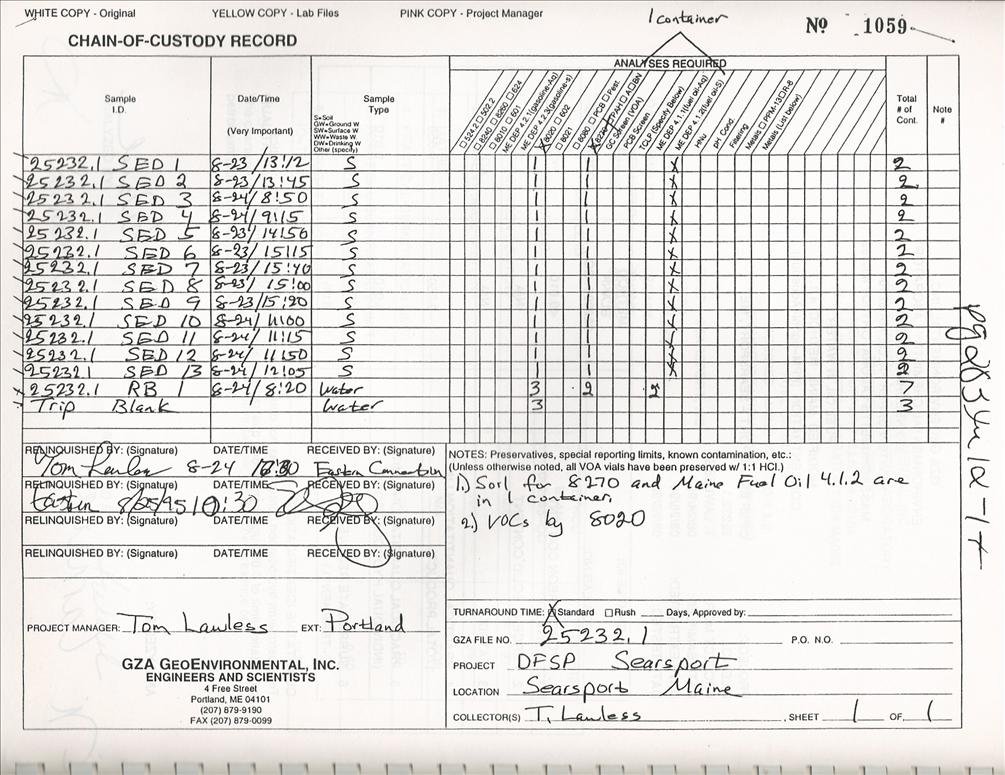 WHITE COPY - Original YELLOW COPY - Lab Files PINK COPY - Project Manager 1 container No 1059
CHAIN-OF-CUSTODY RECORD
ANALYSES REQUIRED
Sample I.D. Date/Time (Very Important) Sample Type Total # of Cont. Note #
S=Soil
GW=Ground W
SW=Surface W
WW=Waste W
DW=Drinking W
Other (specify)
☐ 524.2 ☐ 502.2
☐ 8240 ☐ 8260 ☐ 624
☐ 8010 ☐ 601
ME DEP 4.2.1 (gasoline-Aq)
ME DEP 4.2.3 (gasoline-s)
☒ 8020 ☐ 602
☐ 8021
☐ 8080 ☐ PCB ☐ Pest.
☒ 8270 ☐ PAH ☐ A ☐ BN
GC Screen (VOA)
PCB Screen
TCLP (Specify Below)
ME DEP 4.1.1 (fuel oil-Aq)
ME DEP 4.1.2 (fuel oil-S)
HNU
pH Cond.
Filtering
Metals ☐ PPM-13 ☐ R-8
Metals (List below)
25232.1 SED 1 8-23/13:12 S 1 1 X 2
25232.1 SED 2 8-23/13:45 S 1 1 X 2
25232.1 SED 3 8-24/8:50 S 1 1 X 2
25232.1 SED 4 8-24/9:15 S 1 1 X 2
25232.1 SED 5 8-23/14:50 S 1 1 X 2
25232.1 SED 6 8-23/15:15 S 1 1 X 2
25232.1 SED 7 8-23/15:40 S 1 1 X 2
25232.1 SED 8 8-23/15:00 S 1 1 X 2
25232.1 SED 9 8-23/15:20 S 1 1 X 2
25232.1 SED 10 8-24/11:00 S 1 1 X 2
25232.1 SED 11 8-24/11:15 S 1 1 X 2
25232.1 SED 12 8-24/11:50 S 1 1 X 2
25232.1 SED 13 8-24/12:05 S 1 1 X 2
25232.1 RB 1 8-24/8:20 Water 3 2 2 7
Trip Blank Water 3 3
RELINQUISHED BY: (Signature) DATE/TIME RECEIVED BY: (Signature)
8-24 Eastern Connection
RELINQUISHED BY: (Signature) DATE/TIME RECEIVED BY: (Signature)
Eastern 8/25/95 10:30
RELINQUISHED BY: (Signature) DATE/TIME RECEIVED BY: (Signature)
RELINQUISHED BY: (Signature) DATE/TIME RECEIVED BY: (Signature)
NOTES: Preservatives, special reporting limits, known contamination, etc.:
(Unless otherwise noted, all VOA vials have been preserved w/ 1:1 HCl.)
1.) Soil for 8270 and Maine Fuel Oil 4.1.2 are
in 1 container.
2.) VOCs by 8020
PROJECT MANAGER: Tom Lawless EXT: Portland
GZA GEOENVIRONMENTAL, INC.
ENGINEERS AND SCIENTISTS
4 Free Street
Portland, ME 04101
(207) 879-9190
FAX (207) 879-0099
TURNAROUND TIME: ☒ Standard ☐ Rush ____ Days, Approved by:
GZA FILE NO. 25232.1 P.O. NO.
PROJECT DFSP Searsport
LOCATION Searsport Maine
COLLECTOR(S) T. Lawless , SHEET 1 OF 1